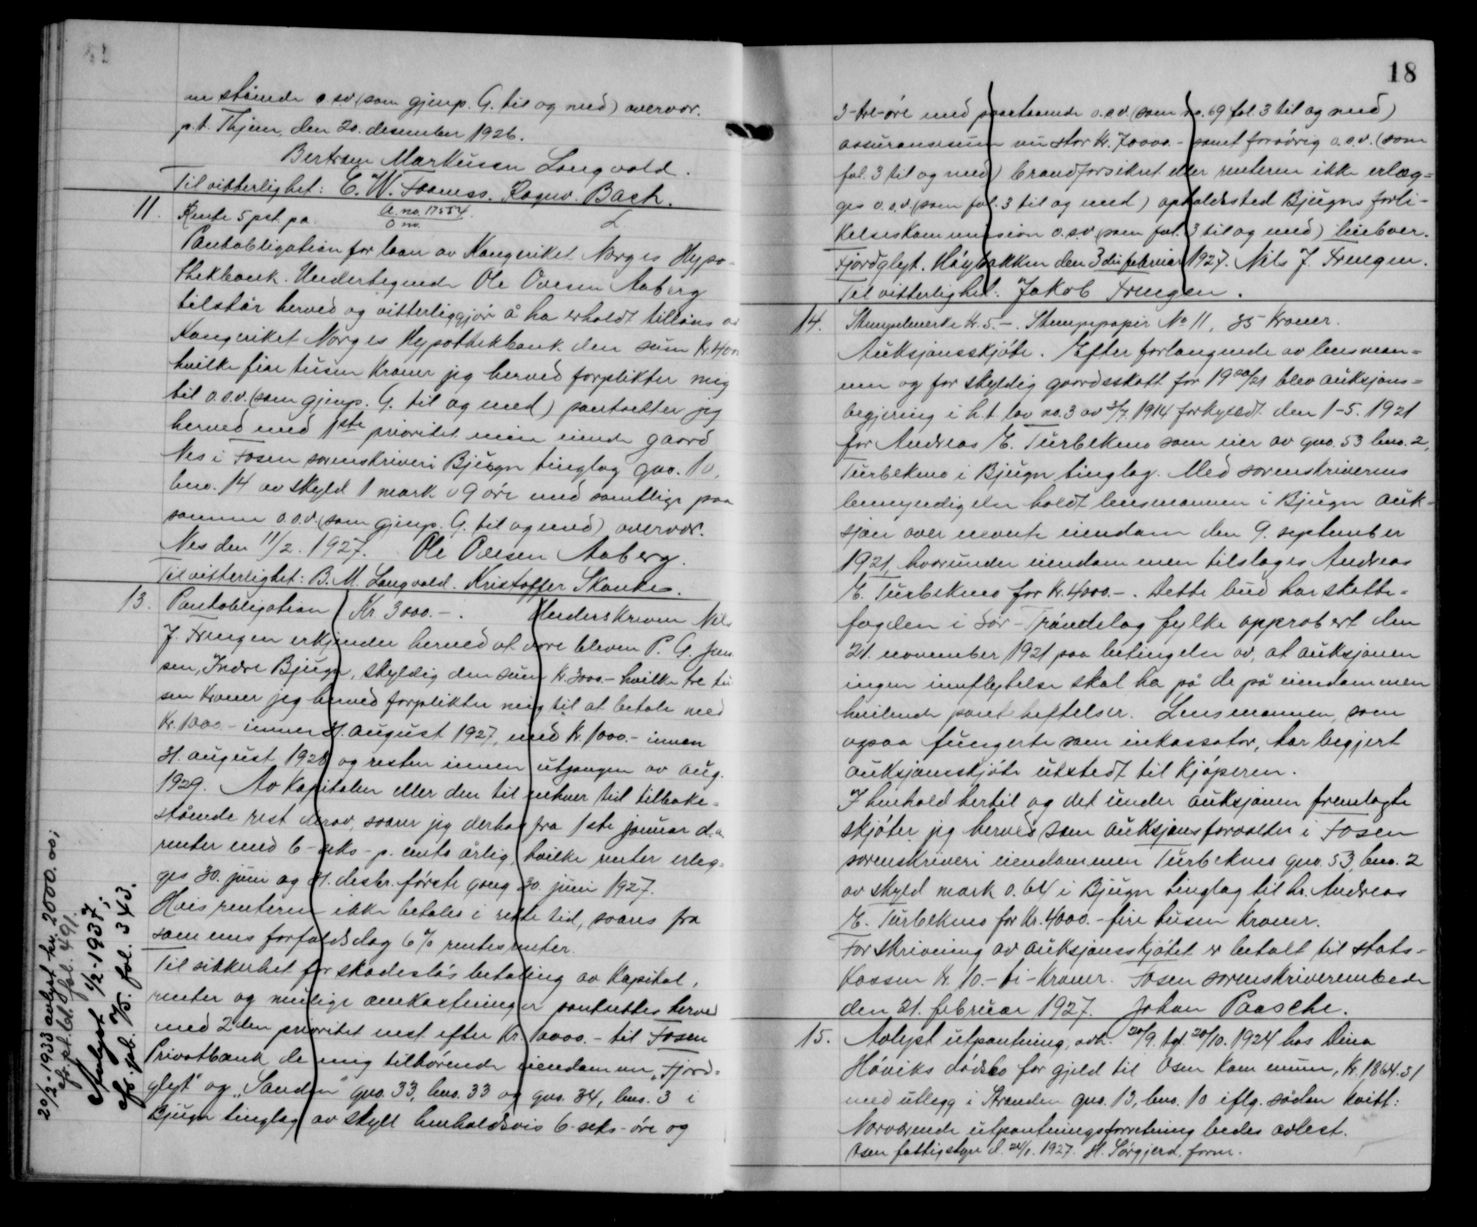 ne stående o.s.v. (som gjenp. G. til og med) overvær.
p.t. Thjem, den 20. desember 1926.
Bertram Markussen Langvold.
Til vitterlighet: C. W. Bach.
11. Rente 5 pct. pa. A. no. 17554. O no.
Pantobligation for laan av Kongeriket Norges Hypo-
thekbank. Undertegnede Ole Ovesen Aaberg
tilstår herved og vitterliggjør å ha erholdt tillåns av
Kongeriket Norges Hypothekbank den sum kr. 4000
hvilke fire tusen kroner jeg herved forplikter mig
til o.s.v. (som gjenp. G. til og med) pantsetter jeg
herved med 1ste prioritet min eiende gaard
Nes i Fosen sorenskriveri Bjugn tinglag gno. 10,
bno. 14 av skyld 1 mark 09 øre med samtlige paa
samme o.s.v. (som gjenp. G. til og med) overvær.
Nes den 11/2. 1927. Ole Ovesen Aaberg.
Til vitterlighet: B. M. Langvold. Kristoffer Skanke.
13. Pantobligation Kr 3000.–. Underskreven Nils
J. Frengen erkjender herved at være bleven P. G. Jen
sen, Indre Bjugn, skyldig den sum kr. 3000.– hvilke tre tu
sen kroner jeg herved forplikter mig til at betale med
kr. 1000.– innen 31. august 1927, med kr. 1000.– innen
31. august 1928 og resten innen utgangen av aug.
1929. Av kapitalen eller den til enhver tid tilbake-
stående rest derav, svarer jeg derhos fra 1ste januar d.å.
renter med 6–seks–p. cents årlig, hvilke renter erleg-
ges 30. juni og 31. desbr. første gang 30. juni 1927.
Hvis renterne ikke betales i rette tid, svares fra
sammes forfaldsdag 6 % rentesrenter.
Til sikkerhet for skadesløs betaling av kapital,
renter og mulige omkostninger pantsettes herved
med 2den prioritet nest efter kr. 10000.– til Fosen
Privatbank de mig tilhørende eiendommer „Fjord-
gløt" og „Sanden" gno. 33, bno. 33 og gno. 34, bno. 3 i
Bjugn tinglag av skyld henholdsvis 6–seks–øre og
20/2-1933 avlyst kr. 2000.00;
cfr. pt. bl. fol. 491.
Avlyst 1/2-1937;
cfr. pb. 75. fol. 343.
18
3–tre–øre med påstående o.s.v. (som no. 69 fol. 3 til og med)
assuransesum nu stor kr. 70000.– samt forøvrig o.s.v. (som
fol. 3 til og med) brandforsikret eller renterne ikke erlæg-
ges o.s.v. (som fol. 3 til og med) opholdssted Bjugns forli-
kelseskommission o.s.v. (som fol. 3 til og med)
Fjordgløt. Høybakken den 3die februar 1927. Nils J. Frengen.
Til vitterlighet. Jakob Frengen.
14. Stempelmerke kr. 5.–. Stempepapir No 11, 35 kroner.
Auksjonsskjøte. Efter forlangende av lensman-
nen og for skyldig gaardsskatt for 1920/21 blev auksjons-
begjering i h.t. lov no. 3 av 3/7. 1914 forkynt den 1-5. 1921
for Andreas E. Turbekmo som eier av gno. 53 bno. 2,
Turbekmo i Bjugn tinglag. Med sorenskriverens
bemyndigelse holdt lensmannen i Bjugn auk-
sjon over nevnte eiendom den 9. september
1921, hvorunder eiendommen tilsloges Andreas
E. Turbekmo for kr. 4000.–. Dette bud har skatte-
fogden i Sør-Trøndelag fylke approbert den
21. november 1921 paa betingelse av, at auksjonen
ingen innflytelse skal ha på de på eiendommen
hvilende pantheftelser. Lensmannen, som
ogsaa fungerte som inkassator, har begjert
auksjonsskjøte utstedt til kjøperen.
I henhold hertil og det under auksjonen fremlagte
skjøter jeg herved som auksjonsforvalter i Fosen
sorenskriveri eiendommen Turbekmo gno. 53, bno. 2
av skyld mark 0.64 i Bjugn tinglag til hr. Andreas
E. Turbekmo for kr. 4000.– fire tusen kroner.
For skrivning av auksjonsskjøtet er betalt til stats-
kassen kr. 10.– ti–kroner. Fosen sorenskriverembede
den 21. februar 1927. Johan Paasche.
15. Avlyst utpantning, avh. 20/9. tgl. 20/10. 1924 hos Dina
Høviks dødsbo for gjeld til Osen kommune, kr. 1864.31
med utlegg i Stranden gno. 13, bno. 10 iflg. sådan kvitt:
Nærværende utpantningsforretning bedes avlest.
Osen fattigstyre d. 24/1. 1927. H. Sørgjerd, form.